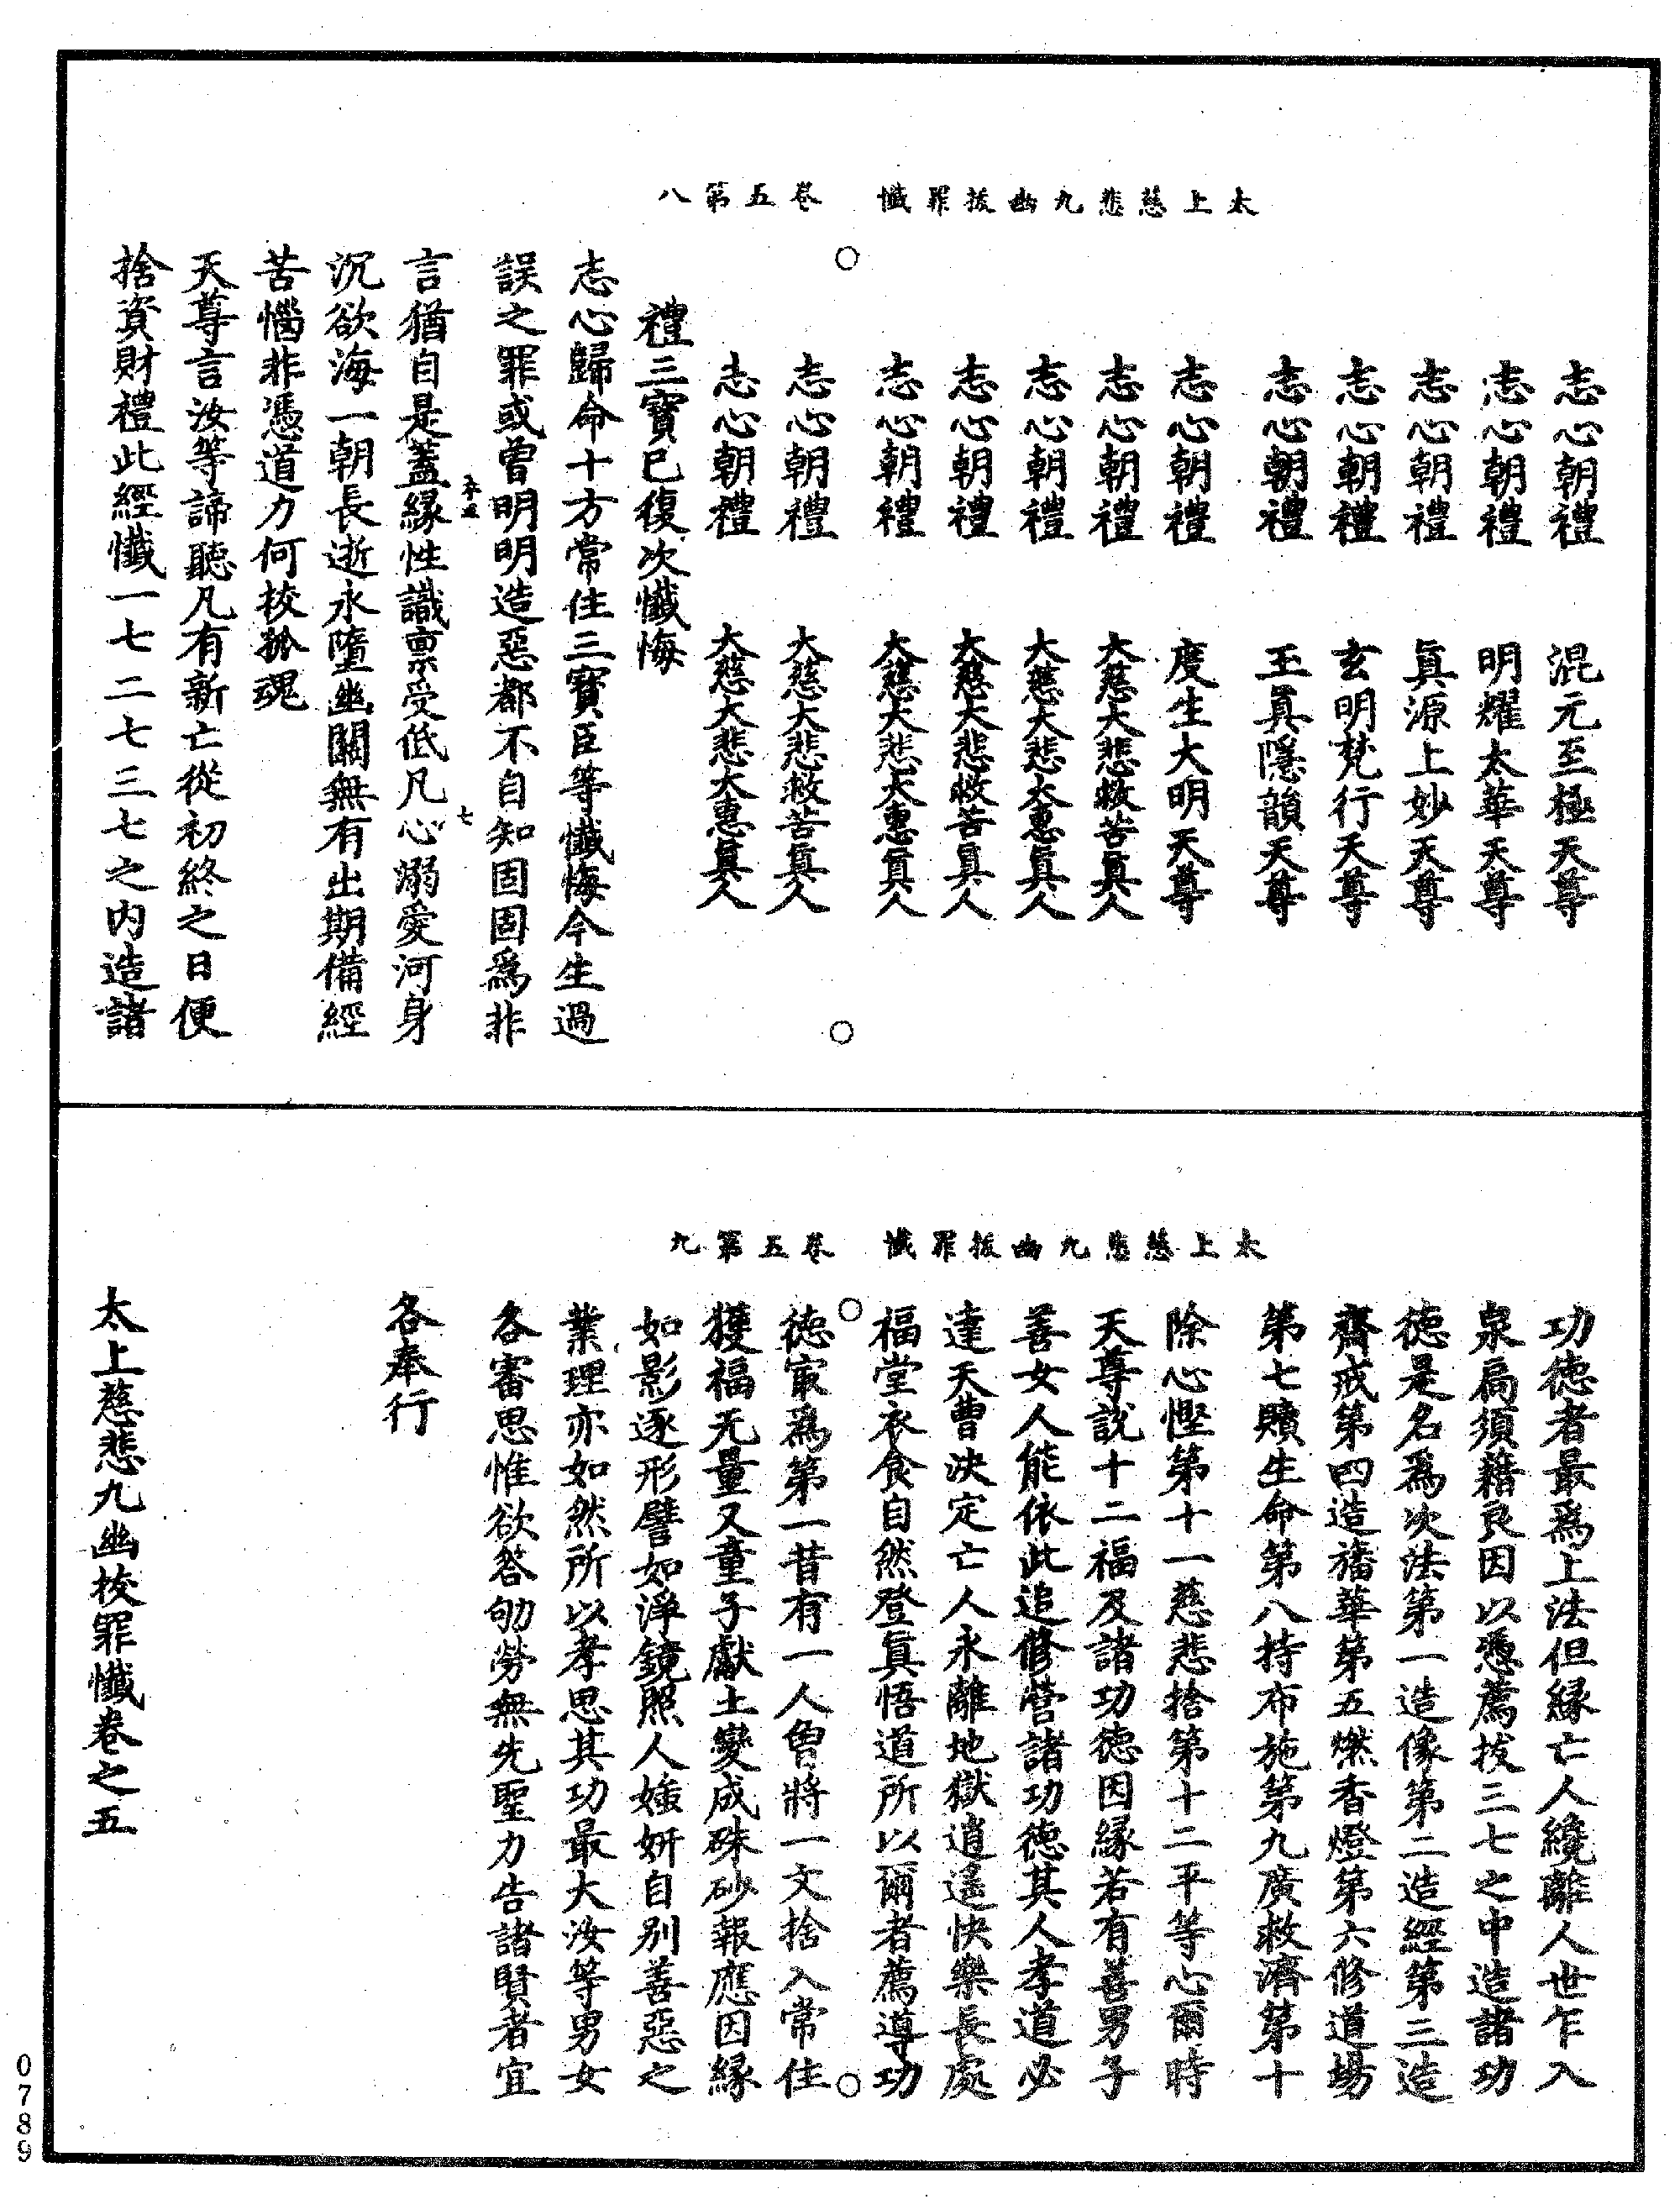 太上慈悲九幽拔罪懺　卷五第八
志心朝禮　混元至極天尊
志心朝禮　明耀太華天尊
志心朝禮　眞源上妙天尊
志心朝禮　玄明梵行天尊
志心朝禮　玉眞隱韻天尊
志心朝禮　度生大明天尊
志心朝禮　大慈大悲救苦眞人
志心朝禮　大慈大悲大惠眞人
志心朝禮　大慈大悲救苦眞人
志心朝禮　大慈大悲大惠眞人
志心朝禮　大慈大悲救苦眞人
志心朝禮　大慈大悲大惠眞人
禮三寶已復次懺悔
志心歸命十方常住三寶臣等懺悔今生過
誤之罪或曾明明造惡都不自知固固爲非
七
言猶自是蓋緣性識禀受低凡心溺愛河身
沉欲海一朝長逝永墮幽關無有出期備經
苦惱非憑道力何拔孤魂
天尊言汝等諦聽凡有新亡從初終之日便
捨資財禮此經懺一七二七三七之內造諸
太上慈悲九幽拔罪懺　卷五第九
功德者最爲上法但緣亡人纔離人世乍入
泉扃須藉良因以憑薦拔三七之中造諸功
德是名爲次法第一造像第二造經第三造
齋戒第四造旛華第五燃香燈第六修道場
第七贖生命第八持布施第九廣救濟第十
除心慳第十一慈悲捨第十二平等心爾時
天尊說十二福及諸功德因緣若有善男子
善女人能依此追修營諸功德其人孝道必
達天曹決定亡人永離地獄逍遙快樂長處
福堂衣食自然登眞悟道所以爾者薦導功
德㝡爲第一昔有一人曾將一文捨入常住
獲福无量又童子獻土變成硃砂報應因緣
如影逐形譬如淨鏡照人媸妍自别善惡之
業理亦如然所以孝思其功最大汝等男女
各審思惟欲答劬勞無先聖力告諸賢者宜
各奉行
太上慈悲九幽拔罪懺卷之五
0789